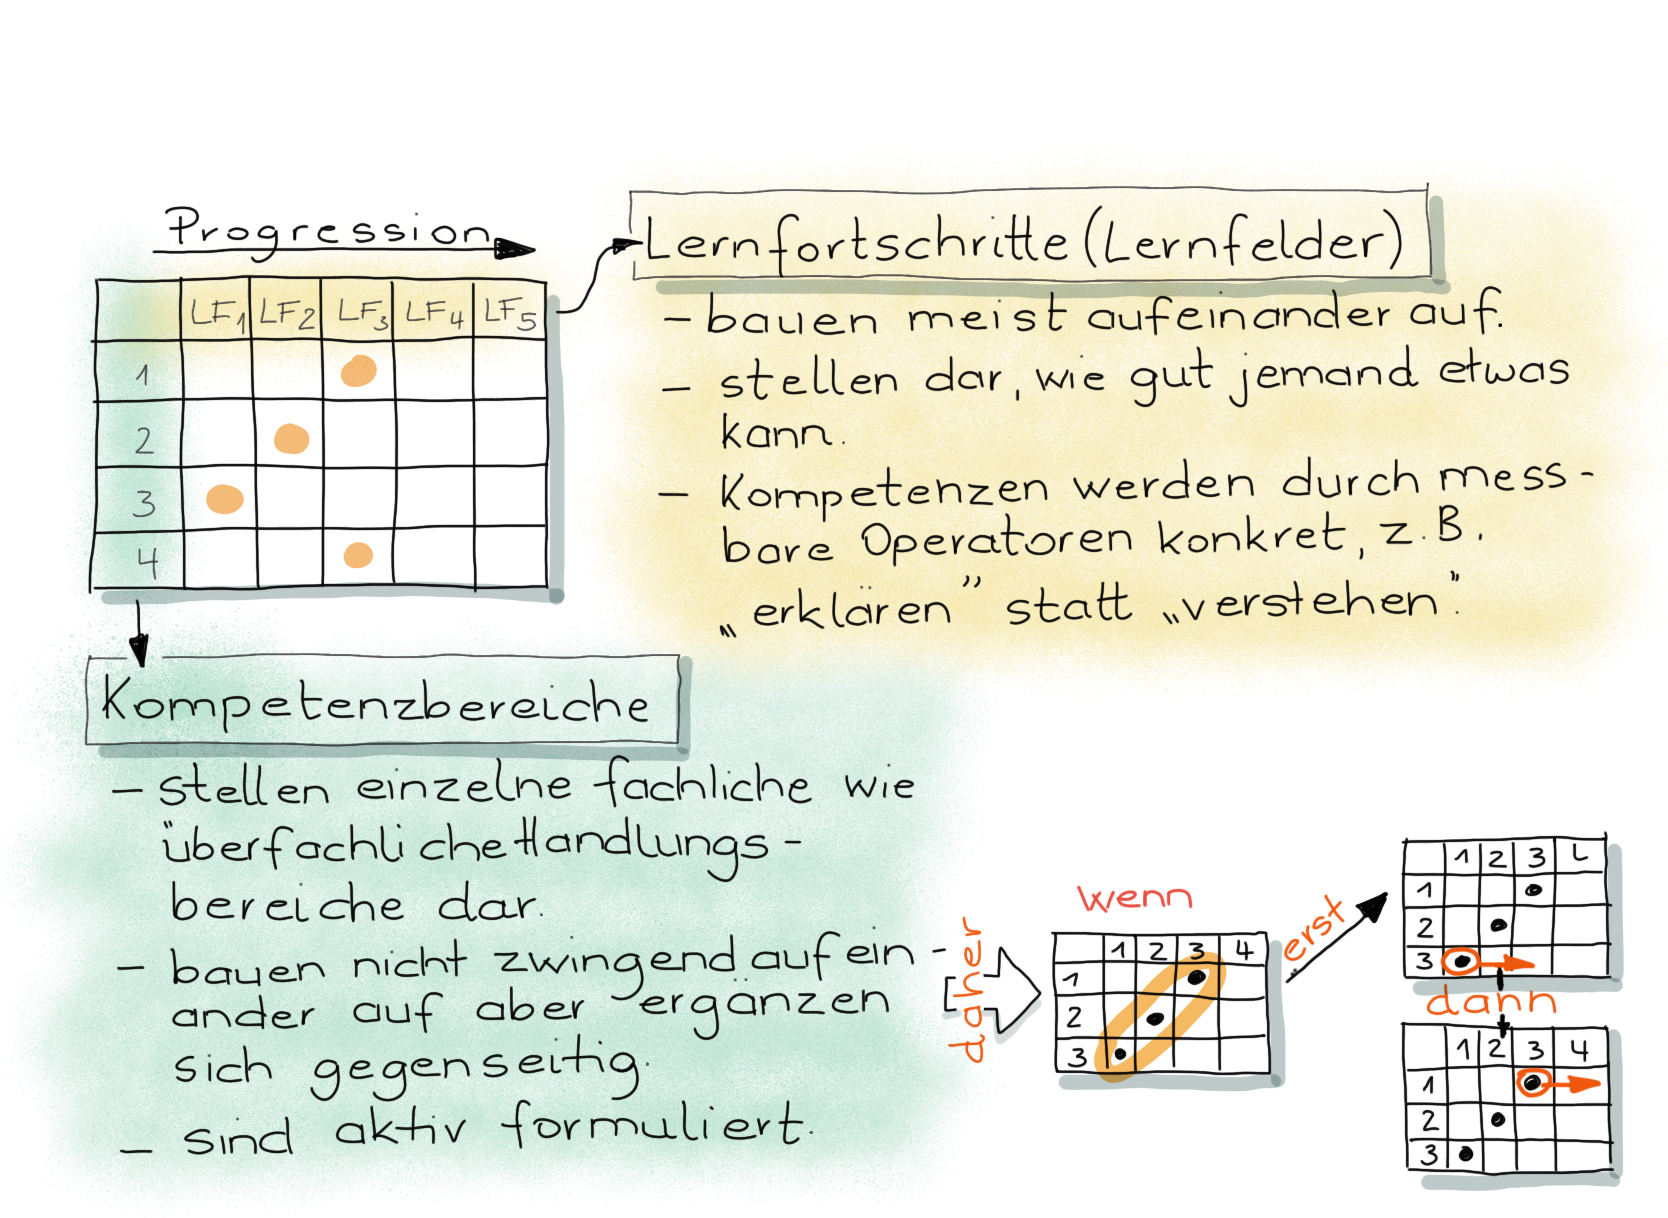 Progression
LF1 LF2 LF3 LF4 LF5
1
2
3
4
Lernfortschritte (Lernfelder)
- bauen meist aufeinander auf.
- stellen dar, wie gut jemand etwas
kann.
- Kompetenzen werden durch mess-
bare Operatoren konkret, z.B.
„erklären” statt „verstehen”.
Kompetenzbereiche
- stellen einzelne fachliche wie
überfachliche Handlungs-
bereiche dar.
- bauen nicht zwingend aufein-
ander auf aber ergänzen
sich gegenseitig.
- sind aktiv formuliert.
daher
wenn
1 2 3 4
1
2
3
erst
1 2 3 L
1
2
3
dann
1 2 3 4
1
2
3